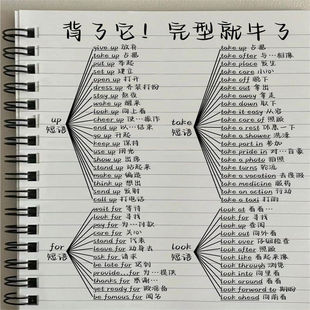 背了它！完型就牛了
up 短语
give up 放弃
take up 占据
put up 举起
set up 建立
open up 打开
dress up 乔装打扮
stay up 熬夜
wake up 醒来
look up 向上看
cheer up 使…振作
end up 以…结束
go up 升起
keep up 保持
use up 用光
show up 出席
stand up 站起来
make up 编造
think up 想出
send up 发射
call up 打电话
for 短语
wait for 等待
look for 寻找
pay for 为…付款
care for 关心
stand for 代表
leave for 动身去
ask for 请求
be late for 迟到
provide...for 为…提供
thanks for 感谢…
get ready for 做准备
be famous for 闻名
take 短语
take up 占据
take after 与…相像
take place 发生
take care 小心
take off 脱下
take out 拿出
take away 拿走
take down 取下
take it easy 从容
take care of 照顾
take a rest 休息一下
take a shower 洗澡
take part in 参加
take pride in 对…自豪
take a photo 拍照
take turns 轮流
take a vacation 去度假
take medicine 服药
take an action 行动
take a taxi 打的
look 短语
look at 看着…
look for 寻找
look up 查阅
look out 向外看
look over 仔细检查
look after 照顾
look like 看起来像
look through 浏览
look into 向里看
look around 看看
look forward to 期盼
look ahead 向前看